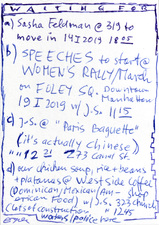 WAITING FOR
a) Sasha Feldman @ 319 to
move in 14 I 2019 18 05
b) SPEECHES to start @
WOMEN'S RALLY/March
on FOLEY SQ. Downtown
Manhattan
19 I 2019 w/J.S. 11 15
c) J.S. @ "Paris Baguette"
(it's actually Chinese)
" " 12 21 273 Canal St.
d) our chicken soup, rice + beans
+ platanos @ Westside Coffee
(Dominican/Mexican/
Food) w/ J.S. 323 Church
(lots of construction 1245